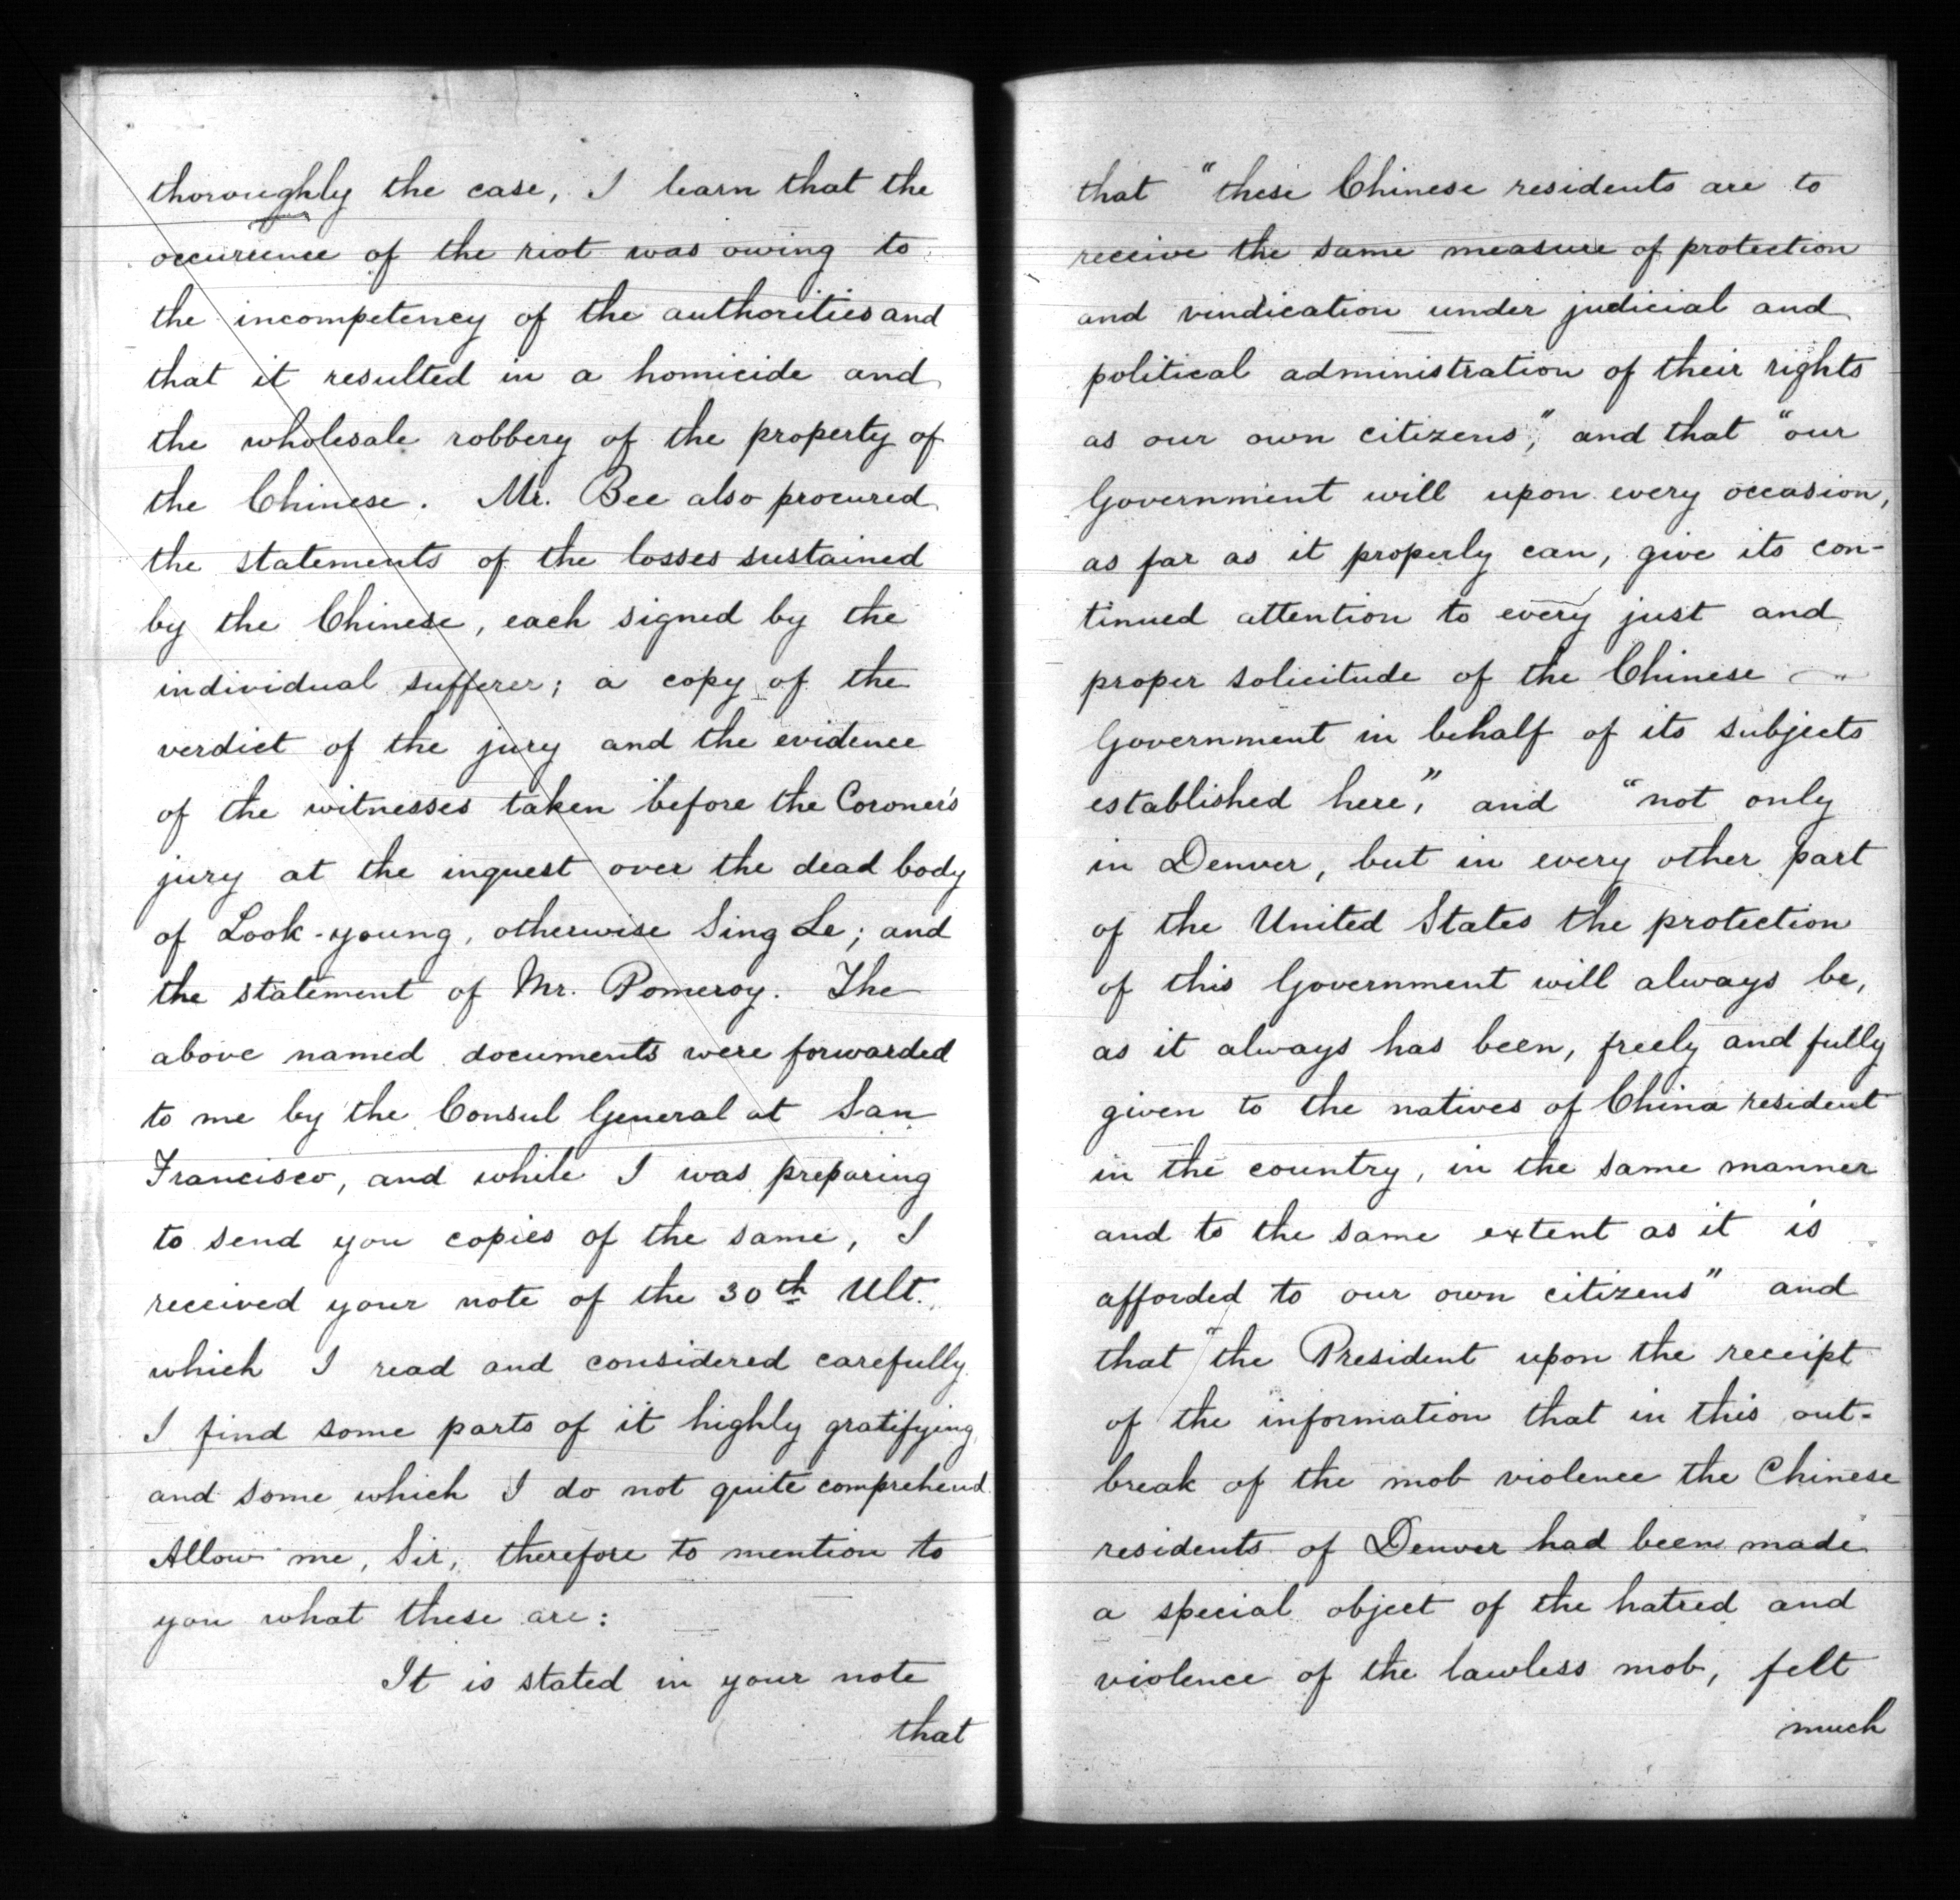 thoroughly the case, I learn that the
occurrence of the riot was owing to
the incompetency of the authorities and
that it resulted in a homicide and
the wholesale robbery of the property of
the Chinese. Mr. Bee also procured
the statements of the losses sustained
by the Chinese, each signed by the
individual sufferer; a copy of the
verdict of the jury and the evidence
of the witnesses taken before the Coroner's
jury at the inquest over the dead body
of Look-young, otherwise Sing Le; and
the statement of Mr. Pomeroy. The
above named documents were forwarded
to me by the Consul General at San
Francisco, and while I was preparing
to send you copies of the same, I
received your note of the 30th Ult.
which I read and considered carefully.
I find some parts of it highly gratifying,
and some which I do not quite comprehend.
Allow me, Sir, therefore to mention to
you what these are:
It is stated in your note
that
that "these Chinese residents are to
receive the same measure of protection
and vindication under judicial and
political administration of their rights
as our own citizens," and that "our
Government will upon every occasion,
as far as it properly can, give its con-
tinued attention to every just and
proper solicitude of the Chinese
Government in behalf of its subjects
established here," and "not only
in Denver, but in every other part
of the United States the protection
of this Government will always be,
as it always has been, freely and fully
given to the natives of China resident
in the country, in the same manner
and to the same extent as it is
afforded to our own citizens" and
that "the President upon the receipt
of the information that in this out-
break of the mob violence the Chinese
residents of Denver had been made
a special object of the hatred and
violence of the lawless mob, felt
much